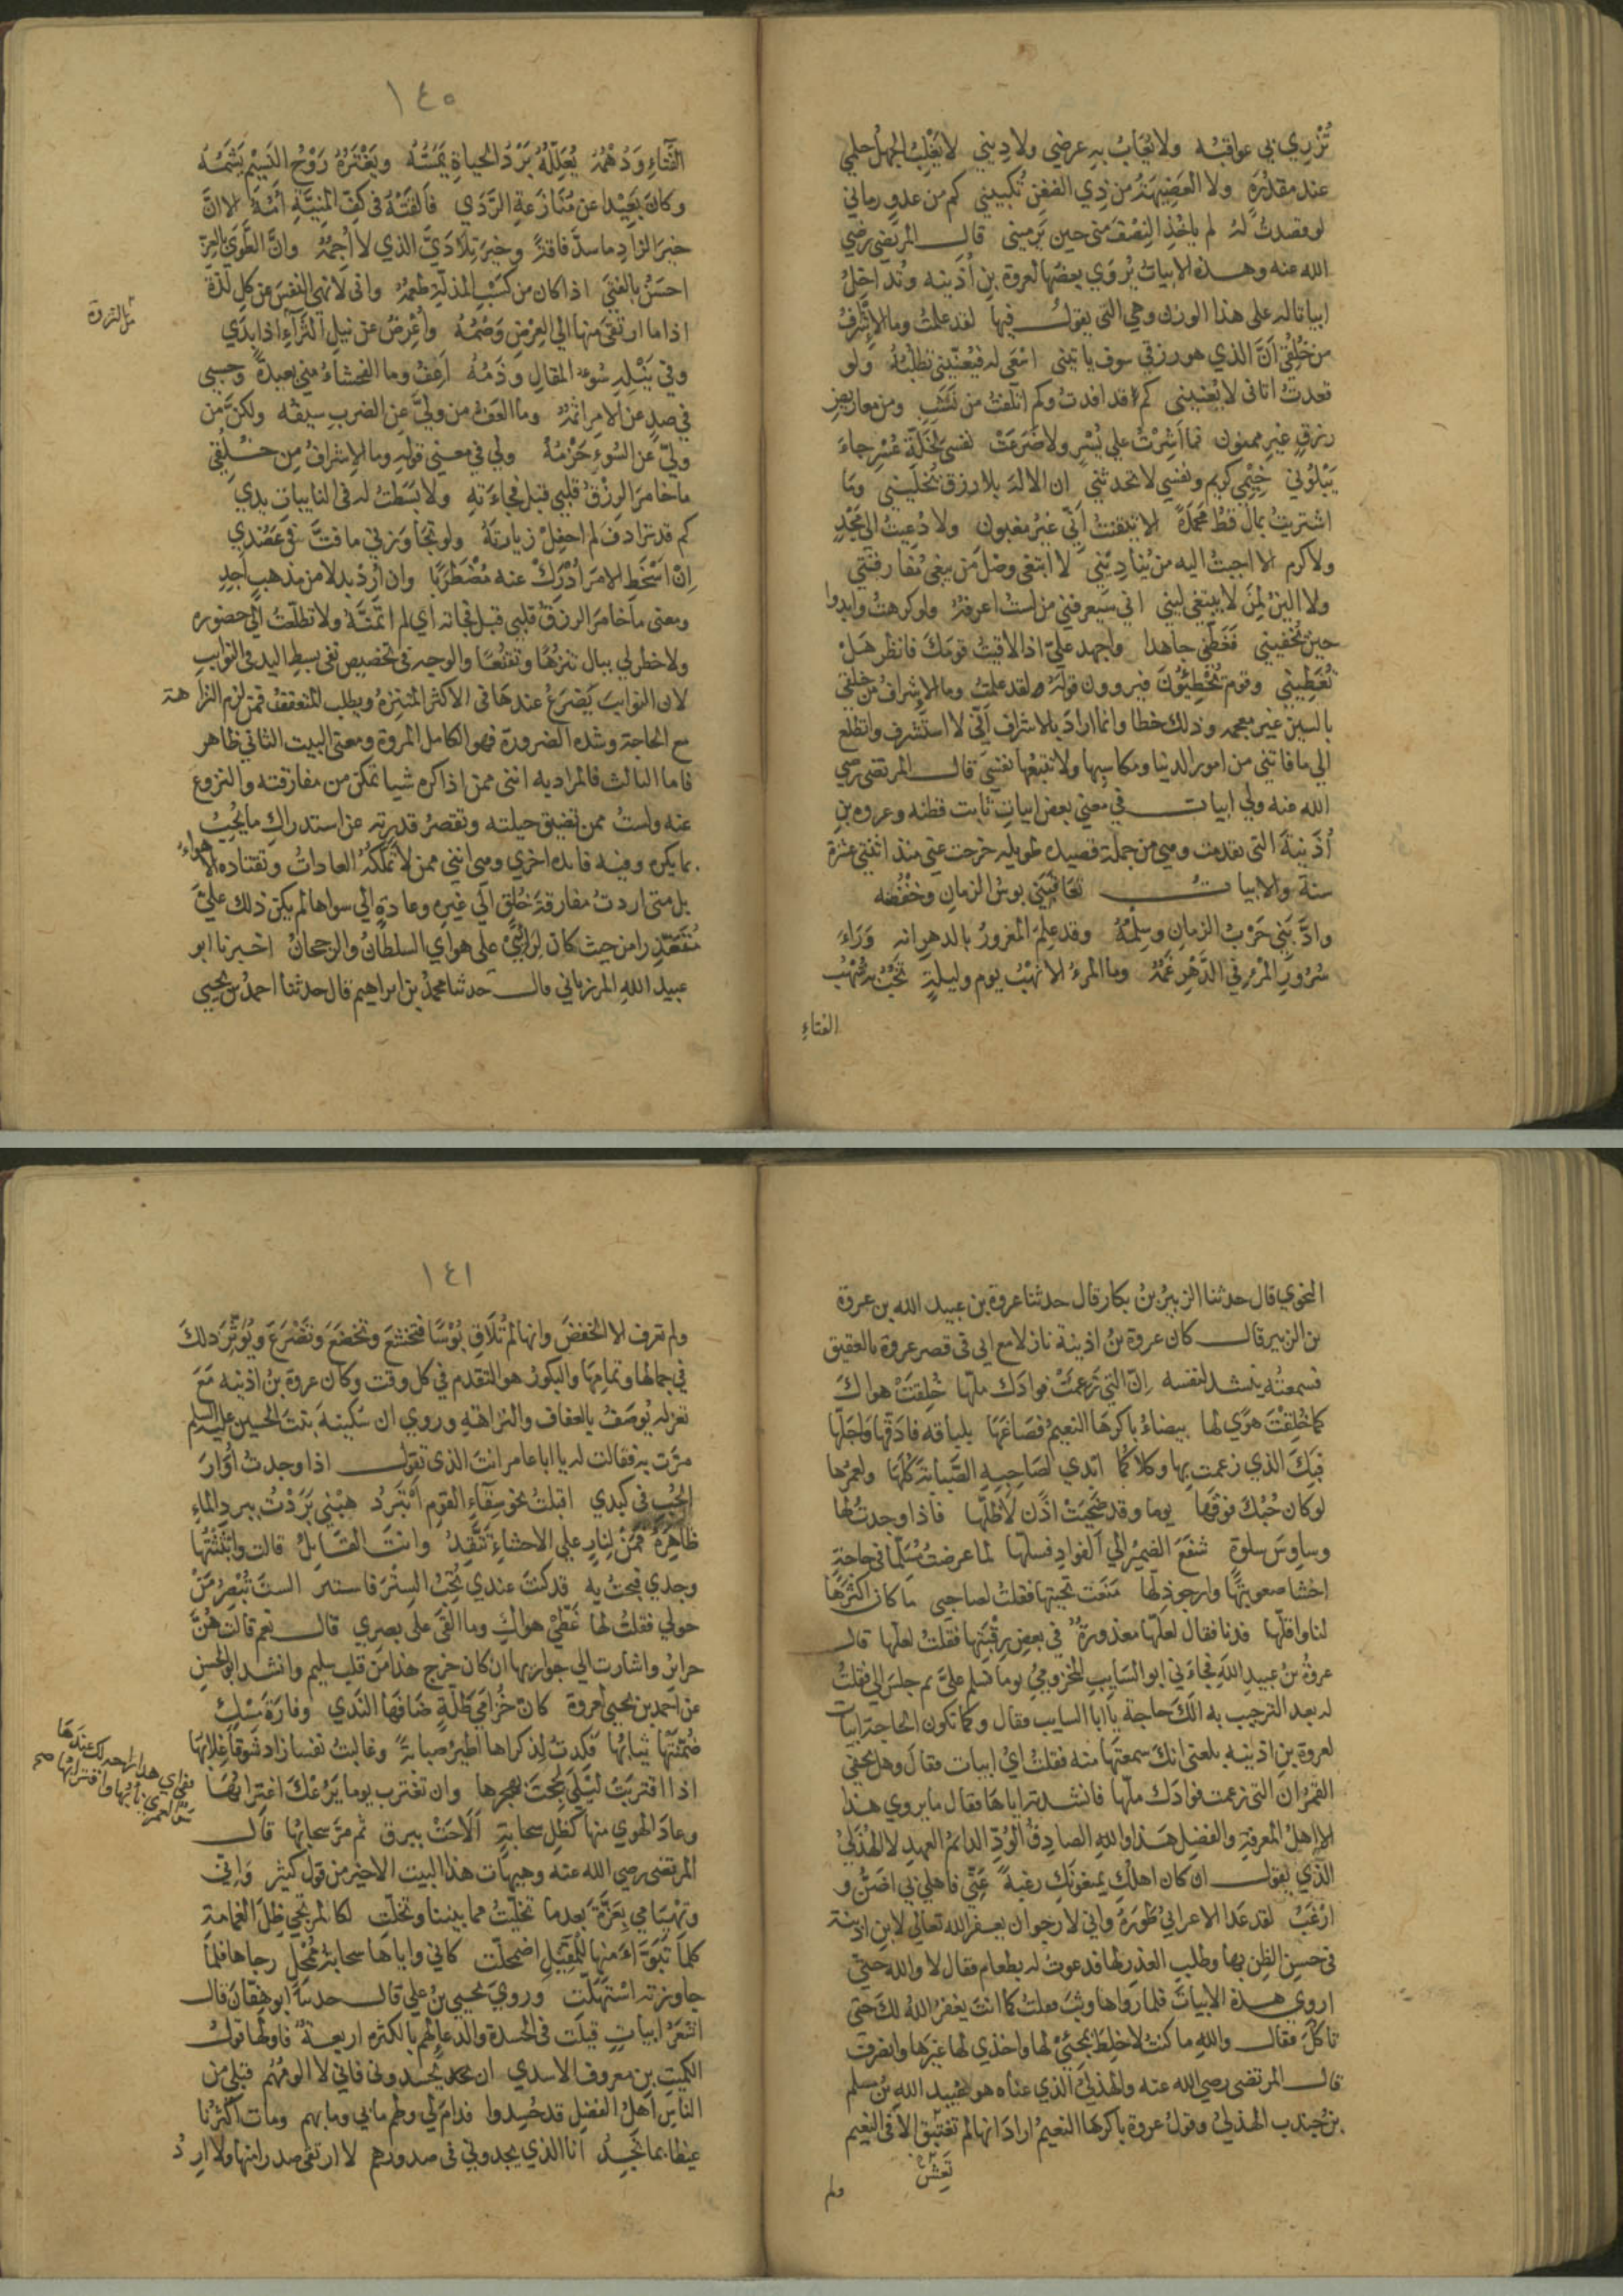 تُزْرِي بي عواقبُه ولا يُعَابُ به عرضي ولا دِيني لا يَغْلِبُ الجهلُ حلمي
عند مقدُرَةٍ ولا العَضِيهَةُ من ذِي الضغن تُكبيني كم من عدوٍ رماني
لو قصدتُ لهُ لم ياخُذِ النِصْفَ مني حين يَرْميني قال المرتضى رضي
الله عنه وهذه الابيات يُروَي بعضها لعروة بن أُذَينه وتُداخلُ
ابياتا له على هذا الوزن وهي التى يقول فيها لقد علمتُ وما الإشرافُ
من خُلقي أَنَّ الذي هو رزقي سوف ياتيني اسْعَى له فيُعنّيني تطلّبُهُ ولو
قعدتُ أتاني لا يُعنّيني كم قد افدتُ وكم اتلفتُ من نَشَبٍ ومن معاريض
رزقٍ غير ممنون فما اَشِرْتُ على يُسْرٍ ولا ضَرَعَتْ نفسي لخَلّةِ عُسْرٍ جاءَ
يَبْلُوني خِيْمي كريم ونفسي لا تحدثني إن الاله بلا رزق يُخلّيني وما
اشتريتُ بمال قطُ مَحْمَدَةً الا تيقنتُ أَنّي غيرُ مغبون ولا دُعيتُ الى مَجْدٍ
ولا كرم الا اجبتُ اليه من يُنادِيْني لا ابتغى وصْلَ من يبغى مُفارقتي
ولا الينُ لمِنْ لا يبتغى ليني اني سَيعرفني من لستُ اعرفهُ ولو كرهتُ وابدوا
حين تُخفيني فَغَطّني جاهدا واجهد عليّ اذا لاقيتُ قومَكَ فانظر هَلْ
تُغَطِيني وقوم يُخْطِئُونَ فيروون قوله ولقد علمتُ وما الإسرافُ من خلقي
بالسين غير معجمه وذلك خطا وانما اراد بالاشراف اَنّي لا استشرف واتطلع
الى ما فاتني من امور الدنيا ومكاسبها ولا تتبعها نفسي قال المرتضى رضي
الله عنه ولي ابيات في معني بعض ابيات ثابت قطنه وعروه بن
أُذَينةَ التى تقدمت وهي من جملة قصيده طويله خرجت عني منذ اثنتي عشرة
سنة والابيات تعاقَبَني بوسُ الزمانِ وخَفْضُه
وادَّبَني حَرْبُ الزمانِ وسِلْمُهُ وقد علِمَ المغرورُ بالدهرِ انه وَرَاءَ
سُرُورِ المرْءِ في الدَّهْرِ غَمُّهُ وما المرءُ الا نَهْبُ يوم وليلةٍ تَخُبُّ به شُهْبُ
الفَنَاءِ
١٤٥
الفَنَاءِ وَدُهْمُهُ يُعَلّلُهُ بَرْدُ الحياةِ يَمَسُّهُ ويَغْتَرُهُ رَوْحُ النَسِيْمِ يَشَمُّهُ
وكانَ بَعِيْدا عن مُنَازَعةِ الرَّدَي فَالقَتْهُ فى كفِّ المنِيّةِ أُمُّهُ الا انَّ
خيرَ الزادِ ما سدَّ فاقةً وخيرَ تِلادَيَّ الذي لا أَجِمُّهُ وانَّ الطَّوَى بالعِزِّ
احسَنُ بالفتَى اذا كان من كَسْبِ المذلّةِ طعمُهُ وانى لأنهى النفسَ عن كل لذة
اذا ما ارتقى منها الي العِرْضِ وَصْمُهُ وأُعْرِضُ عن نيلِ الثَّراءِ اذا بدَي
من الثروة
وفي نَيْلِهِ سُوءُ المقالِ وذَمُّهُ أَعِفُّ وما الفحشاءُ مني بعيدةً وحسبي
في صدٍ عن الامر اثمُهُ وما العَفُ من ولّى عن الضربِ سيفُه ولكنَّ من
ولّى عن السُوءِ حَزْمُهُ ولي في معني قوله وما الإشرافُ مِن خُلُقي
ما خامرَ الرِزْقُ قلبي قبل فجاءَتهِ ولا بَسَطتُ له فى النايبات يدي
كم قد ترادفَ لم احفِلْ زيارتَهُ ولو تجَاوَزني ما فتَّ في عَضُدي
اِنْ اَسْخَطِ الامرَ أُدْرِكْ عنه مُضْطَرَبًا وان أُرِدْ بدلا من مذهبٍ أَجِدِ
ومعنى ما خامرَ الرزقُ قلبي قبل فجاته اي لم اتمنَّهُ ولا تطلّعتُ الى حضوره
ولا خطر لي ببال تنزهًا وتقنعًا والوجه في تخصيص نفى بسطِ اليد في النوايب
لان النوايبَ يَضرَعُ عندها في الاكثر المتنزهُ ويطلب المتعففُ فمن لزم النزاهة
مع الحاجة وشده الضرورة فهو الكامل المروة ومعنى البيت الثاني ظاهر
فاما الثالث فالمراد به انني ممن اذا كره شيا تمكن من مفارقته والنزوع
عنه ولستُ ممن تضيق حيلته وتقصرُ قدرته عن استدراكِ ما يُحِبُّ
بما يكره وفيه فايده اخرى وهي انني ممن لا تَملّكَهُ العاداتُ وتقتاده الاهواءُ
بل متى اردتُ مفارقةَ خُلقٍ الي غيره وعادةٍ الى سواها لم يكن ذلك عليَّ
مُتَعَذّرا من حيث كان لرأيي على هواي السلطانُ والرجحانُ اخبرنا ابو
عبيد اللهِ المرزباني قال حدثنا محمدُ بن ابراهيم قال حدثنا احمدُ بن يحيى
النحوي قال حدثنا الزبيرُ بنُ بكار قال حدثنا عروة بن عبيد الله بن عروة
بن الزبير قال كان عروة بنُ اذينة نازلا مع ابي فى قصر عروة بالعقيق
فسمعتُه ينشد لنفسه اِنّ التي زَعمَتْ فوادَك ملّها خُلِقَتْ هواكَ
كما خُلِقْتَ هوًي لها بيضاءُ باكرَها النعيمُ فصَاغَها بلباقه فادَقَّها واَجَلّها
فبِكَ الذي زعمت بها وكلاكُما ابْدي لصَاحِبِهِ الصَّبابةَ كُلّهَا ولعمرُها
لو كان حُبُّكَ فوقها يوما وقد ضَحِيَتْ اذًن لأَظلّها فاذا وجدتُ لها
وساوسَ سلوةٍ شفَعَ الضميرُ الي الفوادِ فسلّها لما عرضتُ مُسَلّما لي حاجةٍ
اخشا صعوبتَها وارجو ذِلّها مَنَعَت تحيتها فقلتُ لصاحبي ما كان اكثرَها
لنا واقلّها فدنا فقال لعلّها معذورةٌ في بعضِ رِقْبَتِها فقلتُ لعلّها قال
عروةُ بن عبيد اللهِ فجاءَني ابو السَايبِ المخزوميُّ يوما فسلم عليَّ ثم جلس الي فقلتُ
له بعد الترحيب به الَكَ حاجة يا ابا السايب فقال وكما تكون الحاجة ابيات
لعروة بن اذينه بلغني انكَ سمعتَها منه فقلتُ ايُ ابيات فقال وهل يخفى
القمرُ ان التى زعمت فوادَك ملّها فانشدته اياها فقال ما يروي هذا
الا اهلُ المعرفةِ والفضلِ هَذا واللهِ الصادِقُ الوُدِّ الدائمُ العهدِ لا الهُذَليُّ
الذي يقول ان كان اهلُكِ يمنعونَكِ رغبةً عَنّي فاهلي بي اضَنُّ و
ارْغَبُ لقد عَدا الاعرابيُ طَورَهُ واني لارجو ان يغفر الله تعالي لابن اذينة
فى حسن الظن بها وطلبِ العذرِ لها فدعوتُ له بطعام فقال لا والله حتى
اروي هذه الابيات فلما رواها وثب فقلتُ كما انتَ يغفرُ اللهُ لكَ حتى
تأكلَ فقال واللهِ ما كنتُ لاخلِطَ بمحبّتي لها واخذي لها غيرَها وانصرفَ
قال المرتضى رضي الله عنه والهذليُّ الذي عناه هو عُبيد اللهِ بن مسلم
بن جندب الهذليُ وقولُ عروة باكرهَا النعيمُ ارادَ انها لم تعش الا في النعيم
تَعِشْ
ولم
١٤١
ولم تعرف الا الخفضَ وانها لم تُلاقِ بُوْسًا فتخشعَ وتخضعَ وتَضْرَعَ ويُؤثِّرَ ذلكَ
في جمالها وتمامِها والبكورُ هو التقدم في كل وقت وكان عروة بنُ اذينه معَ
تغزله يُوصَفُ بالعفاف والنزاهةِ وروي ان سُكَينةَ بنتَ الحسين عليه السلم
مرّت به فقالت له يا ابا عامر انتَ الذي تقول اذا وجدتُ أُوَارَ
الحُبِ في كبدي اقبلتُ نحو سِقَاءِ القومِ أَبْتَرِدُ هَبْني بَرَدْتُ ببردِ الماءِ
ظاهِرَهُ فمَنْ لِنارٍ علي الاحشاءِ تَتَّقِدُ وانتَ القايلُ قالت وابْثَثْتُها
وجدي فبحتُ به قد كنتَ عندي تُحِبُّ السِتْرَ فاستتر الستَ تُبْصِرُ مَنْ
حولي فقلتُ لها غَطّيْ هواكِ وما القَى على بصري قال نعم قالت هُنَّ
حرايرُ واشارت الي جواريها ان كان خرج هذا من قلب سليم وانشد ابو الحسن
عن احمد بن يحيى لعروة كانّ خُزامَي طَلّةٍ ضَافَها النَدي وفارَةَ مِسْكٍ
ضُمّنَتْها ثيابُها فكدتُ لذكراها اَطيرُ صبابةً وغالبتُ نفسا زادَ شوقًا غِلابُها
اذا اقتربَتْ لَيْلَي لَجَجْتَ بهجرِها وان تغترب يوما يَرُعْكَ اغترابُهَا
ففي اي هذا راحه لك عندَها
سَوَاءٌ لعمري نأيُها واقترابُها صح
وعادَ الهوي منها كظلِ سحابةٍ اَلَاحَتْ ببرق ثم مرَّ سحابُها قال
المرتضى رضي الله عنه وهيهات هذا البيت الاخير من قول كثير وَاِنّي
وتهْيَامِي بِعَزَّةَ بعدما تخلّيتُ مما بيننا وتخلّتِ لكالمرتجي ظِلَ الغمامةِ
كلما تَبَوّءَ منها للمقِيْلِ اضمحلّت كاني واياهَا سحابةُ مُمْحِلٍ رجاها فلما
جاوزته استَهَلّت ورويَ يحيى بنُ علي قال حدثنا ابو هِفّانَ قال
اشعرُ ابياتٍ قيلَت فى الحسدة والدعاءِ لهم بالكثره اربعةٌ فاولها قولُ
الكميت بن معروف الاسدي ان يحسدوني فاني لا الومُهُم قبلي من
الناسِ اَهلُ الفضلِ قد حُسِدوا فدامَ لي ولهم ما بي وما بهم ومات اكثرُنا
غيظا بما يَجِدُ أنا الذي يجدوني فى صدورهم لا ارتقى صدرا منها ولا ارِدُ